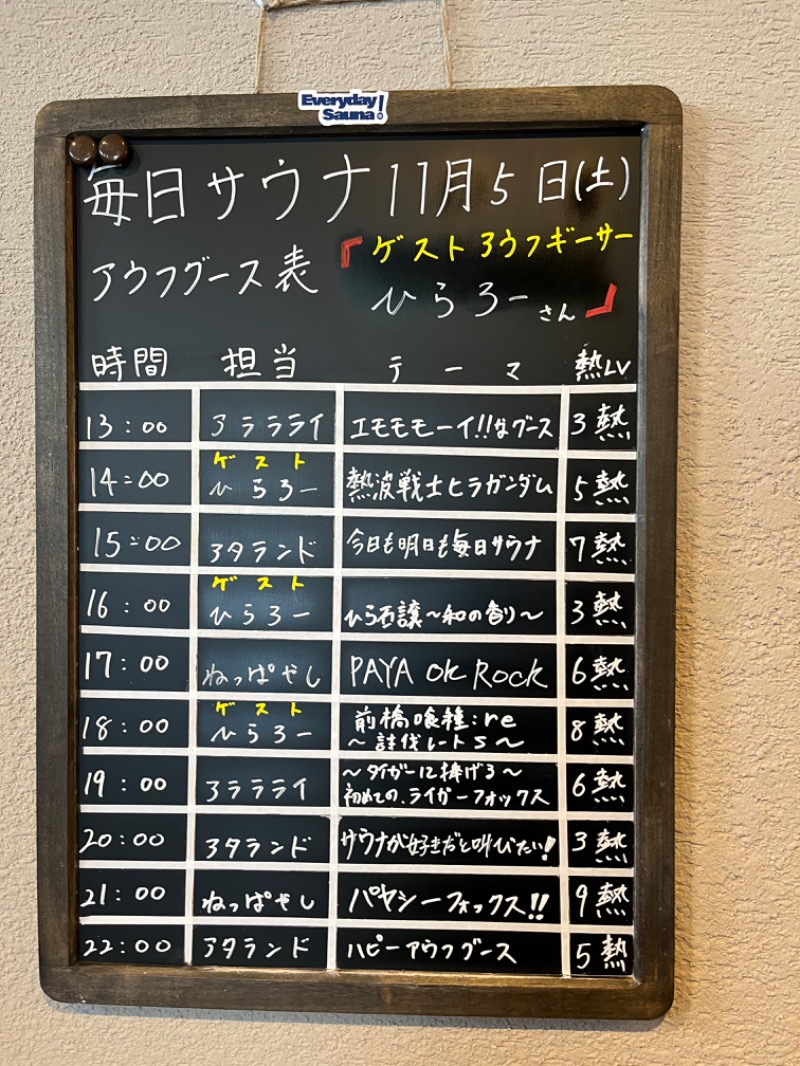 Everyday
Sauna!
毎日サウナ 11月5日(土)
アウフグース表
『ゲスト アウフギーサー
ひらろーさん』
時間 担当 テーマ 熱LV
13:00 アラララライ エモモモーイ!!なグース 3熱
14:00 ゲスト ひらろー 熱波戦士ヒラガンダム 5熱
15:00 アタランド 今日も明日も毎日サウナ 7熱
16:00 ゲスト ひらろー ひら石譲〜和の香り〜 3熱
17:00 ねっぱやし PAYA OK ROCK 6熱
18:00 ゲスト ひらろー 前橋喰種:re
〜討伐レートS〜 8熱
19:00 アラララライ 〜タイガーに捧げる〜
初めての、ライガーフォックス 6熱
20:00 アタランド サウナが好きだと叫びたい! 3熱
21:00 ねっぱやし パヤシーフォックス!! 9熱
22:00 アタランド ハピーアウフグース 5熱